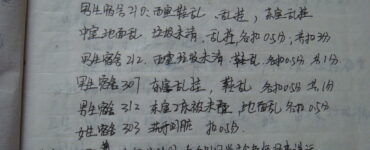 男生宿舍210:西室鞋乱、乱挂,东室乱挂
中室地面乱 垃圾未清、乱挂 各扣0.5分,共扣3分
男生宿舍212.西室垃圾未清、鞋乱 各扣0.5分 共1分
男生宿舍307 东室乱挂,鞋乱 各扣0.5分 共1分
男生宿舍312 东室2床被未叠,地面乱 各扣0.5分
女生宿舍303 扣0.5分